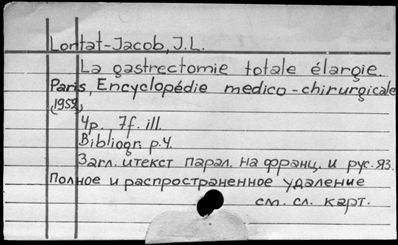 Lortat-Jacob, J.L.
La gastrectomie totale élargie.
Paris, Encyclopédie medico-chirurgicale
(1952)
4p. 7f. ill.
Bibliogr. p.4.
Загл. и текст парал. на франц. и рус. яз.
Полное и распространенное удаление
см. сл. карт.